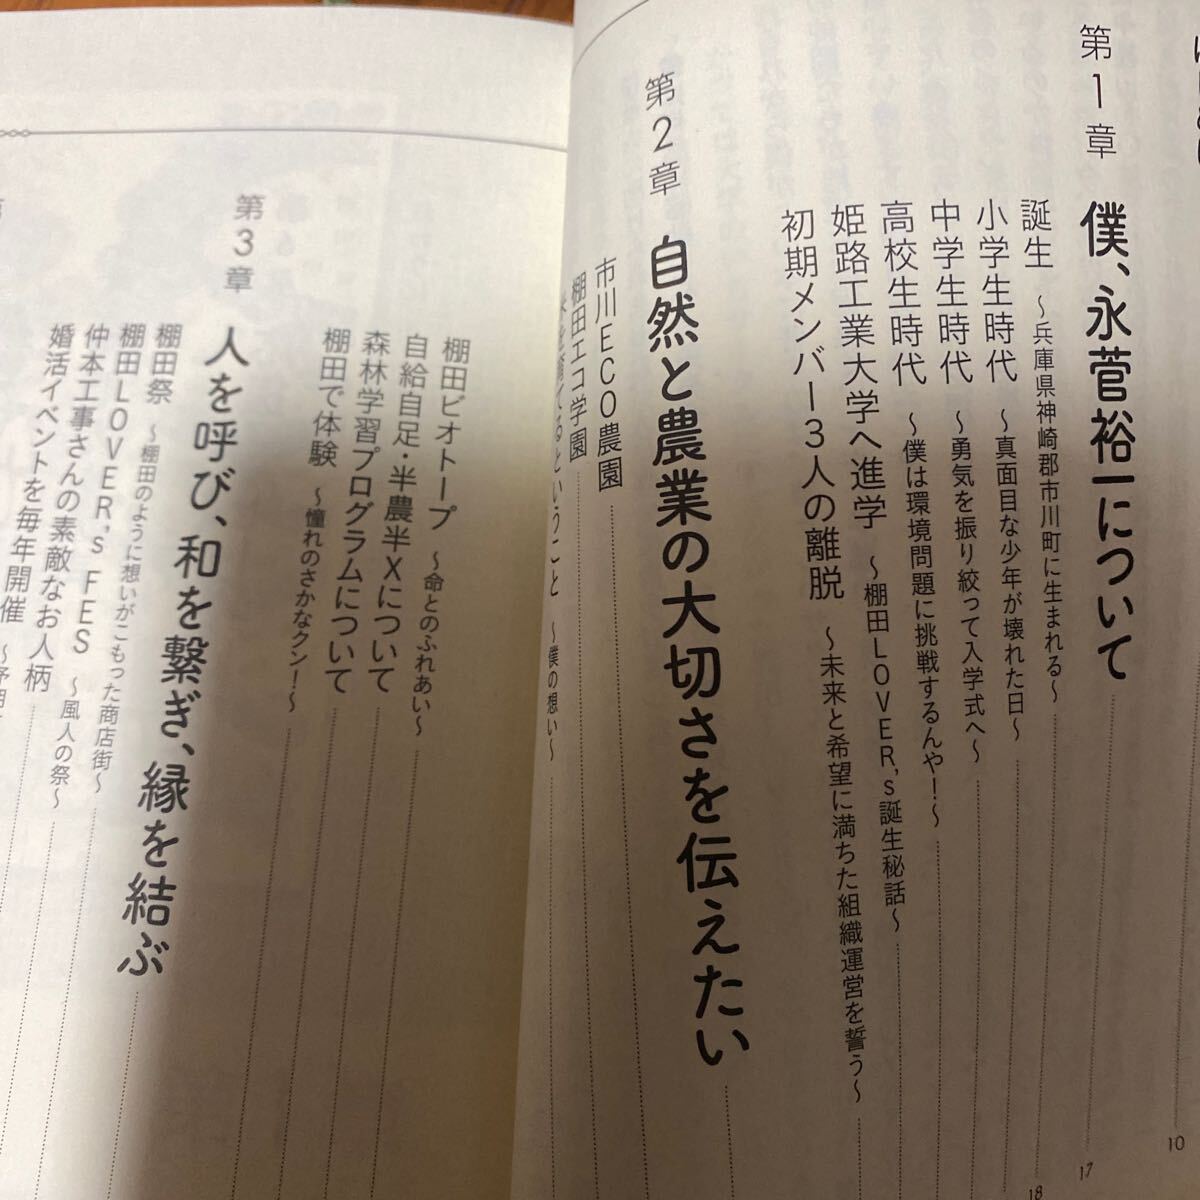 はじめに
10
第1章 僕、永菅裕一について
17
誕生 〜兵庫県神崎郡市川町に生まれる〜
18
小学生時代 〜真面目な少年が壊れた日〜
中学生時代 〜勇気を振り絞って入学式へ〜
高校生時代 〜僕は環境問題に挑戦するんや!〜
姫路工業大学へ進学 〜棚田LOVER's誕生秘話〜
初期メンバー3人の離脱 〜未来と希望に満ちた組織運営を誓う〜
第2章 自然と農業の大切さを伝えたい
市川ECO農園
棚田エコ学園
米を育てるということ 〜僕の想い〜
棚田ビオトープ 〜命とのふれあい〜
自給自足・半農半Xについて
森林学習プログラムについて
棚田で体験 〜憧れのさかなクン!〜
第3章 人を呼び、和を繋ぎ、縁を結ぶ
棚田祭 〜棚田のように想いがこもった商店街〜
棚田LOVER's FES 〜風人の祭〜
仲本工事さんの素敵なお人柄
婚活イベントを毎年開催